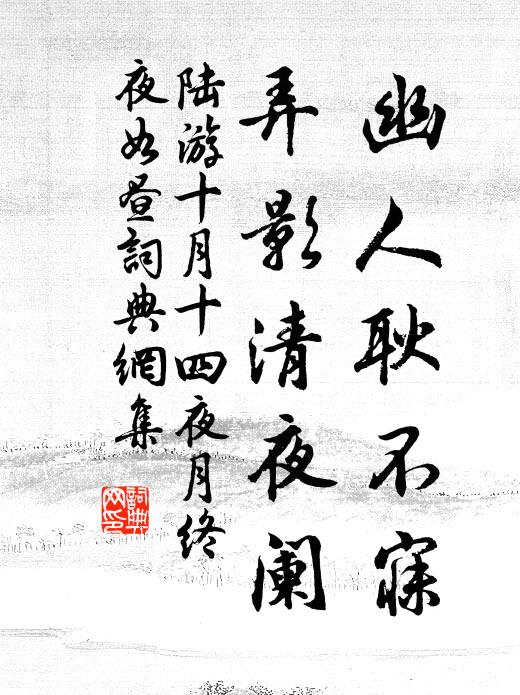 幽人耿不寐
弄影清夜阑
陆游十月十四夜月终
夜如昼詞典網集
詞典网印